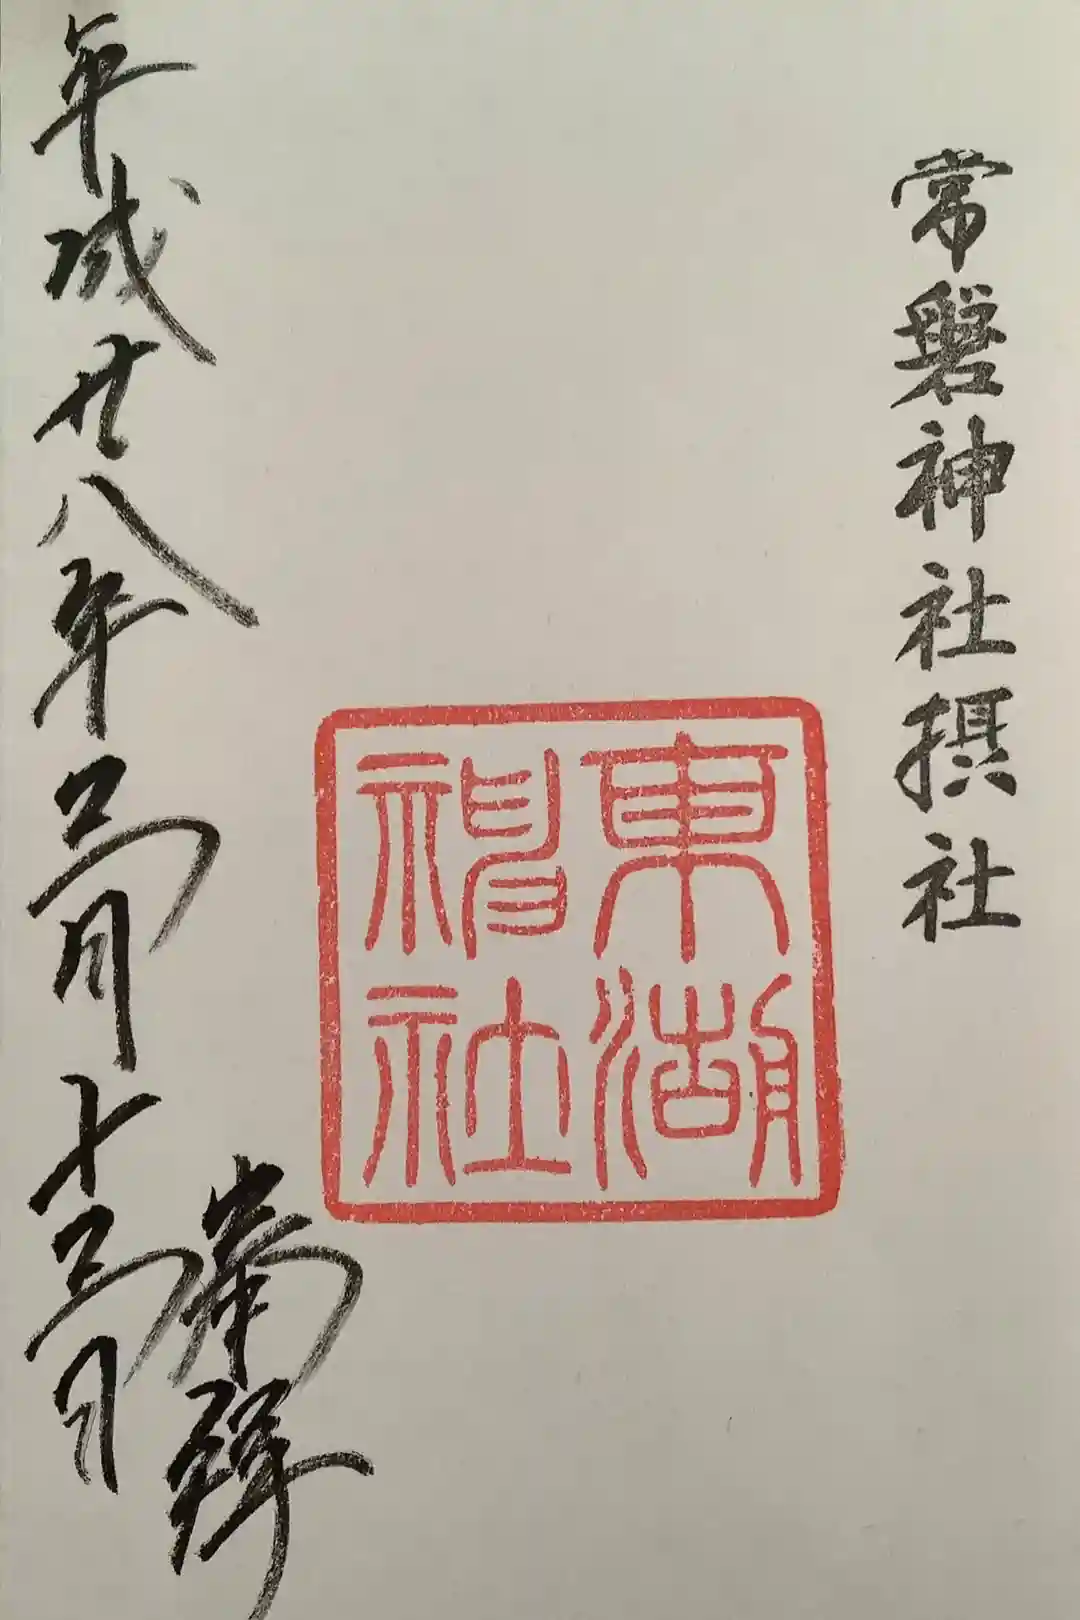 常磐神社摂社
東湖
神社
平成廿八年三月十三日
奉拝